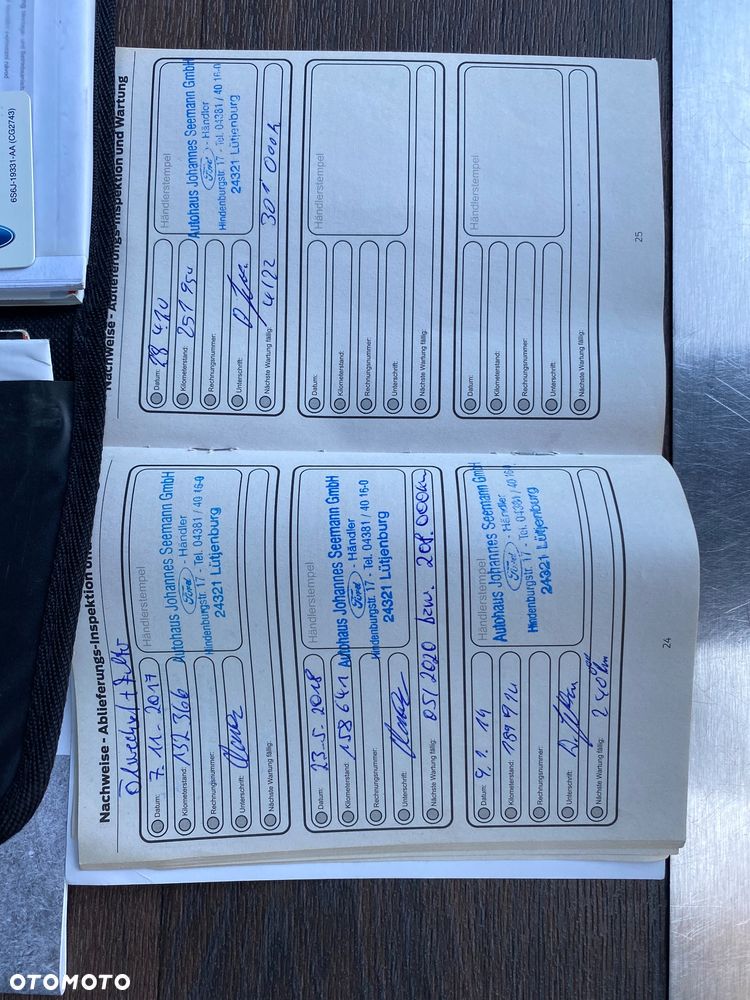 Nachweise - Ablieferungs-Inspektion und
Ölwechsel + Filter
Händlerstempel
Datum: 7. 11. 2017
Kilometerstand: 132 366
Rechnungsnummer:
Unterschrift:
Nächste Wartung fällig:
Autohaus Johannes Seemann GmbH
Ford - Händler
Hindenburgstr. 17 - Tel. 04381 / 40 16-0
24321 Lütjenburg
Händlerstempel
Datum: 23-5. 2018
Kilometerstand: 158 641
Rechnungsnummer:
Unterschrift:
Nächste Wartung fällig: 05/2020 bzw. 208.000km
Autohaus Johannes Seemann GmbH
Ford - Händler
Hindenburgstr. 17 - Tel. 04381 / 40 16-0
24321 Lütjenburg
Händlerstempel
Datum: 9. 1. 19
Kilometerstand: 189 914
Rechnungsnummer:
Unterschrift:
Nächste Wartung fällig:
Autohaus Johannes Seemann GmbH
Ford - Händler
Hindenburgstr. 17 - Tel. 04381 / 40 16-0
24321 Lütjenburg
24
Nachweise - Ablieferungs-Inspektion und Wartung
Händlerstempel
Datum: 28 4.20
Kilometerstand: 251 950
Rechnungsnummer:
Unterschrift:
Nächste Wartung fällig: 4/22 301 000
Autohaus Johannes Seemann GmbH
Ford - Händler
Hindenburgstr. 17 - Tel. 04381 / 40 16-0
24321 Lütjenburg
Händlerstempel
Datum:
Kilometerstand:
Rechnungsnummer:
Unterschrift:
Nächste Wartung fällig:
Händlerstempel
Datum:
Kilometerstand:
Rechnungsnummer:
Unterschrift:
Nächste Wartung fällig:
25
6S6J-19331-AA (CG2743)
OTOMOTO